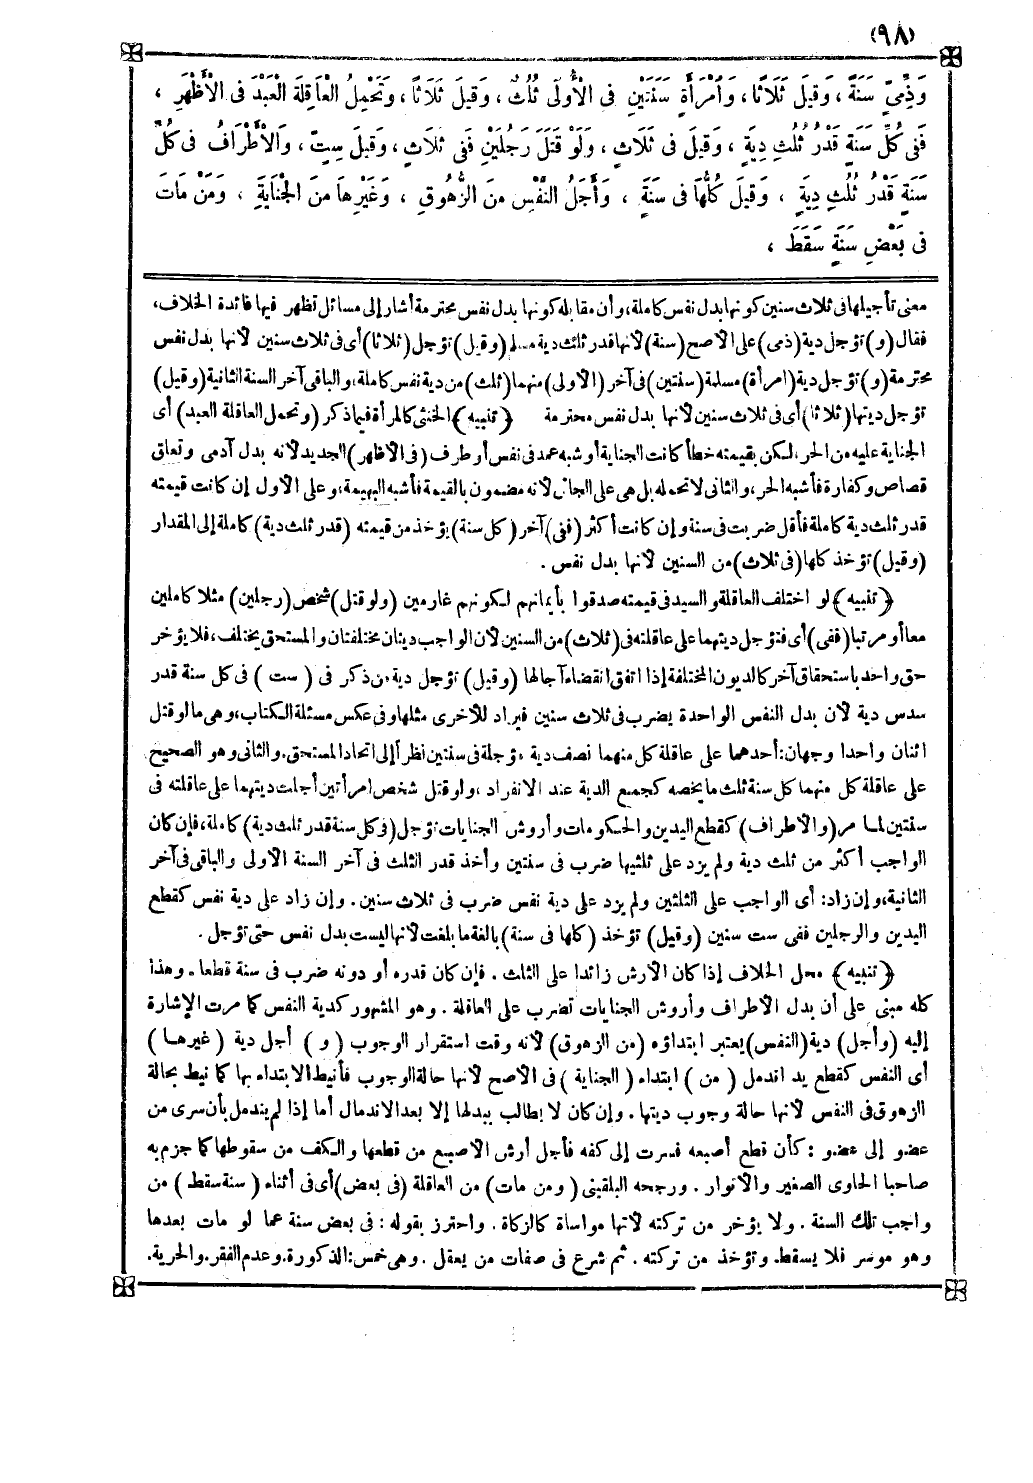 (٩٨)
وَذِمِّيٍّ سَنَةً ، وَقِيلَ ثَلَاثًا ، وَامْرَأَةٍ سَنَتَيْنِ فى الْأُولَى ثُلُثٌ ، وَقِيلَ ثَلَاثًا ، وَتَحْمِلُ الْعَاقِلَةُ الْعَبْدَ فى الْأَظْهَرِ ،
فَفِى كُلِّ سَنَةٍ قَدْرُ ثُلُثِ دِيَةٍ ، وَقِيلَ فى ثَلَاثٍ ، وَلَوْ قَتَلَ رَجُلَيْنِ فَفِى ثَلَاثٍ ، وَقِيلَ سِتٍّ ، وَالْأَطْرَافُ فى كُلِّ
سَنَةٍ قَدْرُ ثُلُثِ دِيَةٍ ، وَقِيلَ كُلُّهَا فى سَنَةٍ ، وَأَجَلُ النَّفْسِ مِنَ الزُّهُوقِ ، وَغَيْرِهَا مِنَ الْجِنَايَةِ ، وَمَنْ مَاتَ
فى بَعْضِ سَنَةٍ سَقَطَ ،
معنى تأجيلها فى ثلاث سنين كونها بدل نفس كاملة، وأن مقابله كونها بدل نفس محترمة أشار إلى مسائل تظهر فيها فائدة الخلاف،
فقال (و) تؤجل دية (ذمى) على الأصح (سنة) لأنها قدر ثلث دية مسلم (وقيل) تؤجل (ثلاثا) أى فى ثلاث سنين لأنها بدل نفس
محترمة (و) تؤجل دية (امرأة) مسلمة (سنتين) فى آخر (الأولى) منهما (ثلث) من دية نفس كاملة، والباقى آخر السنة الثانية (وقيل)
تؤجل ديتها (ثلاثا) أى فى ثلاث سنين لأنها بدل نفس محترمة ﴿تنبيه﴾ الخنثى كالمرأة فيما ذكر (وتحمل العاقلة العبد) أى
الجناية عليه من الحر، لكن بقيمته خطأ كانت الجناية أو شبه عمد فى نفس أو طرف (فى الأظهر) الجديد لأنه بدل آدمى وتعلق
قصاص وكفارة فأشبه الحر، والثانى لا تحمله بل هى على الجانى لأنه مضمون بالقيمة فأشبه البهيمة، وعلى الأول إن كانت قيمته
قدر ثلث دية كاملة فأقل ضربت فى سنة وإن كانت أكثر (ففى) آخر (كل سنة) يؤخذ من قيمته (قدر ثلث دية) كاملة إلى المقدار
(وقيل) تؤخذ كلها (فى ثلاث) من السنين لأنها بدل نفس .
﴿تنبيه﴾ لو اختلف العاقلة والسيد فى قيمته صدقوا بأيمانهم لكونهم غارمين (ولو قتل) شخص (رجلين) مثلا كاملين
معا أو مرتبا (ففى) أى فتؤجل ديتهما على عاقلته فى (ثلاث) من السنين لأن الواجب ديتان مختلفتان والمستحق يختلف، فلا يؤخر
حق واحد باستحقاق آخر كالديون المختلفة إذا اتفق انقضاء آجالها (وقيل) تؤجل دية من ذكر فى (ست) فى كل سنة قدر
سدس دية لأن بدل النفس الواحدة يضرب فى ثلاث سنين فيزاد للأخرى مثلها وفى عكس مسئلة الكتاب، وهى ما لو قتل
اثنان واحدا وجهان: أحدهما على عاقلة كل منهما نصف دية مؤجلة فى سنتين نظرا إلى اتحاد المستحق. والثانى وهو الصحيح
على عاقلة كل منهما كل سنة ثلث ما يخصه كجميع الدية عند الانفراد ، ولو قتل شخص امرأتين أجلت ديتهما على عاقلته فى
سنتين لما مر (والأطراف) كقطع اليدين والحكومات وأروش الجنايات تؤجل (فى كل سنة قدر ثلث دية) كاملة، فإن كان
الواجب أكثر من ثلث دية ولم يزد على ثلثيها ضرب فى سنتين وأخذ قدر الثلث فى آخر السنة الأولى والباقى فى آخر
الثانية، وإن زاد: أى الواجب على الثلثين ولم يزد على دية نفس ضرب فى ثلاث سنين. وإن زاد على دية نفس كقطع
اليدين والرجلين ففى ست سنين (وقيل) تؤخذ (كلها فى سنة) بالغة ما بلغت لأنها ليست بدل نفس حتى تؤجل .
﴿تنبيه﴾ محل الخلاف إذا كان الأرش زائدا على الثلث . فإن كان قدره أو دونه ضرب فى سنة قطعا . وهذا
كله مبنى على أن بدل الأطراف وأروش الجنايات تضرب على العاقلة . وهو المشهور كدية النفس كما مرت الإشارة
إليه (وأجل) دية (النفس) يعتبر ابتداؤه (من الزهوق) لأنه وقت استقرار الوجوب (و) أجل دية (غيرها)
أى النفس كقطع يد اندمل (من) ابتداء (الجناية) فى الأصح لأنها حالة الوجوب فأنيط الابتداء بها كما نيط بحالة
الزهوق فى النفس لأنها حالة وجوب ديتها . وإن كان لا يطالب ببدلها إلا بعد الاندمال أما إذا لم يندمل بأن سرى من
عضو إلى عضو : كأن قطع أصبعه فسرت إلى كفه فأجل أرش الأصبع من قطعها والكف من سقوطها كما جزم به
صاحبا الحاوى الصغير والأنوار . ورجحه البلقينى (ومن مات) من العاقلة (فى بعض) أى فى أثناء (سنة سقط) من
واجب تلك السنة . ولا يؤخر من تركته لأنها مواساة كالزكاة. واحترز بقوله : فى بعض سنة عما لو مات بعدها
وهو موسر فلا يسقط. وتؤخذ من تركته . ثم شرع فى صفات من يعقل . وهى خمس: الذكورة. وعدم الفقر. والحرية.